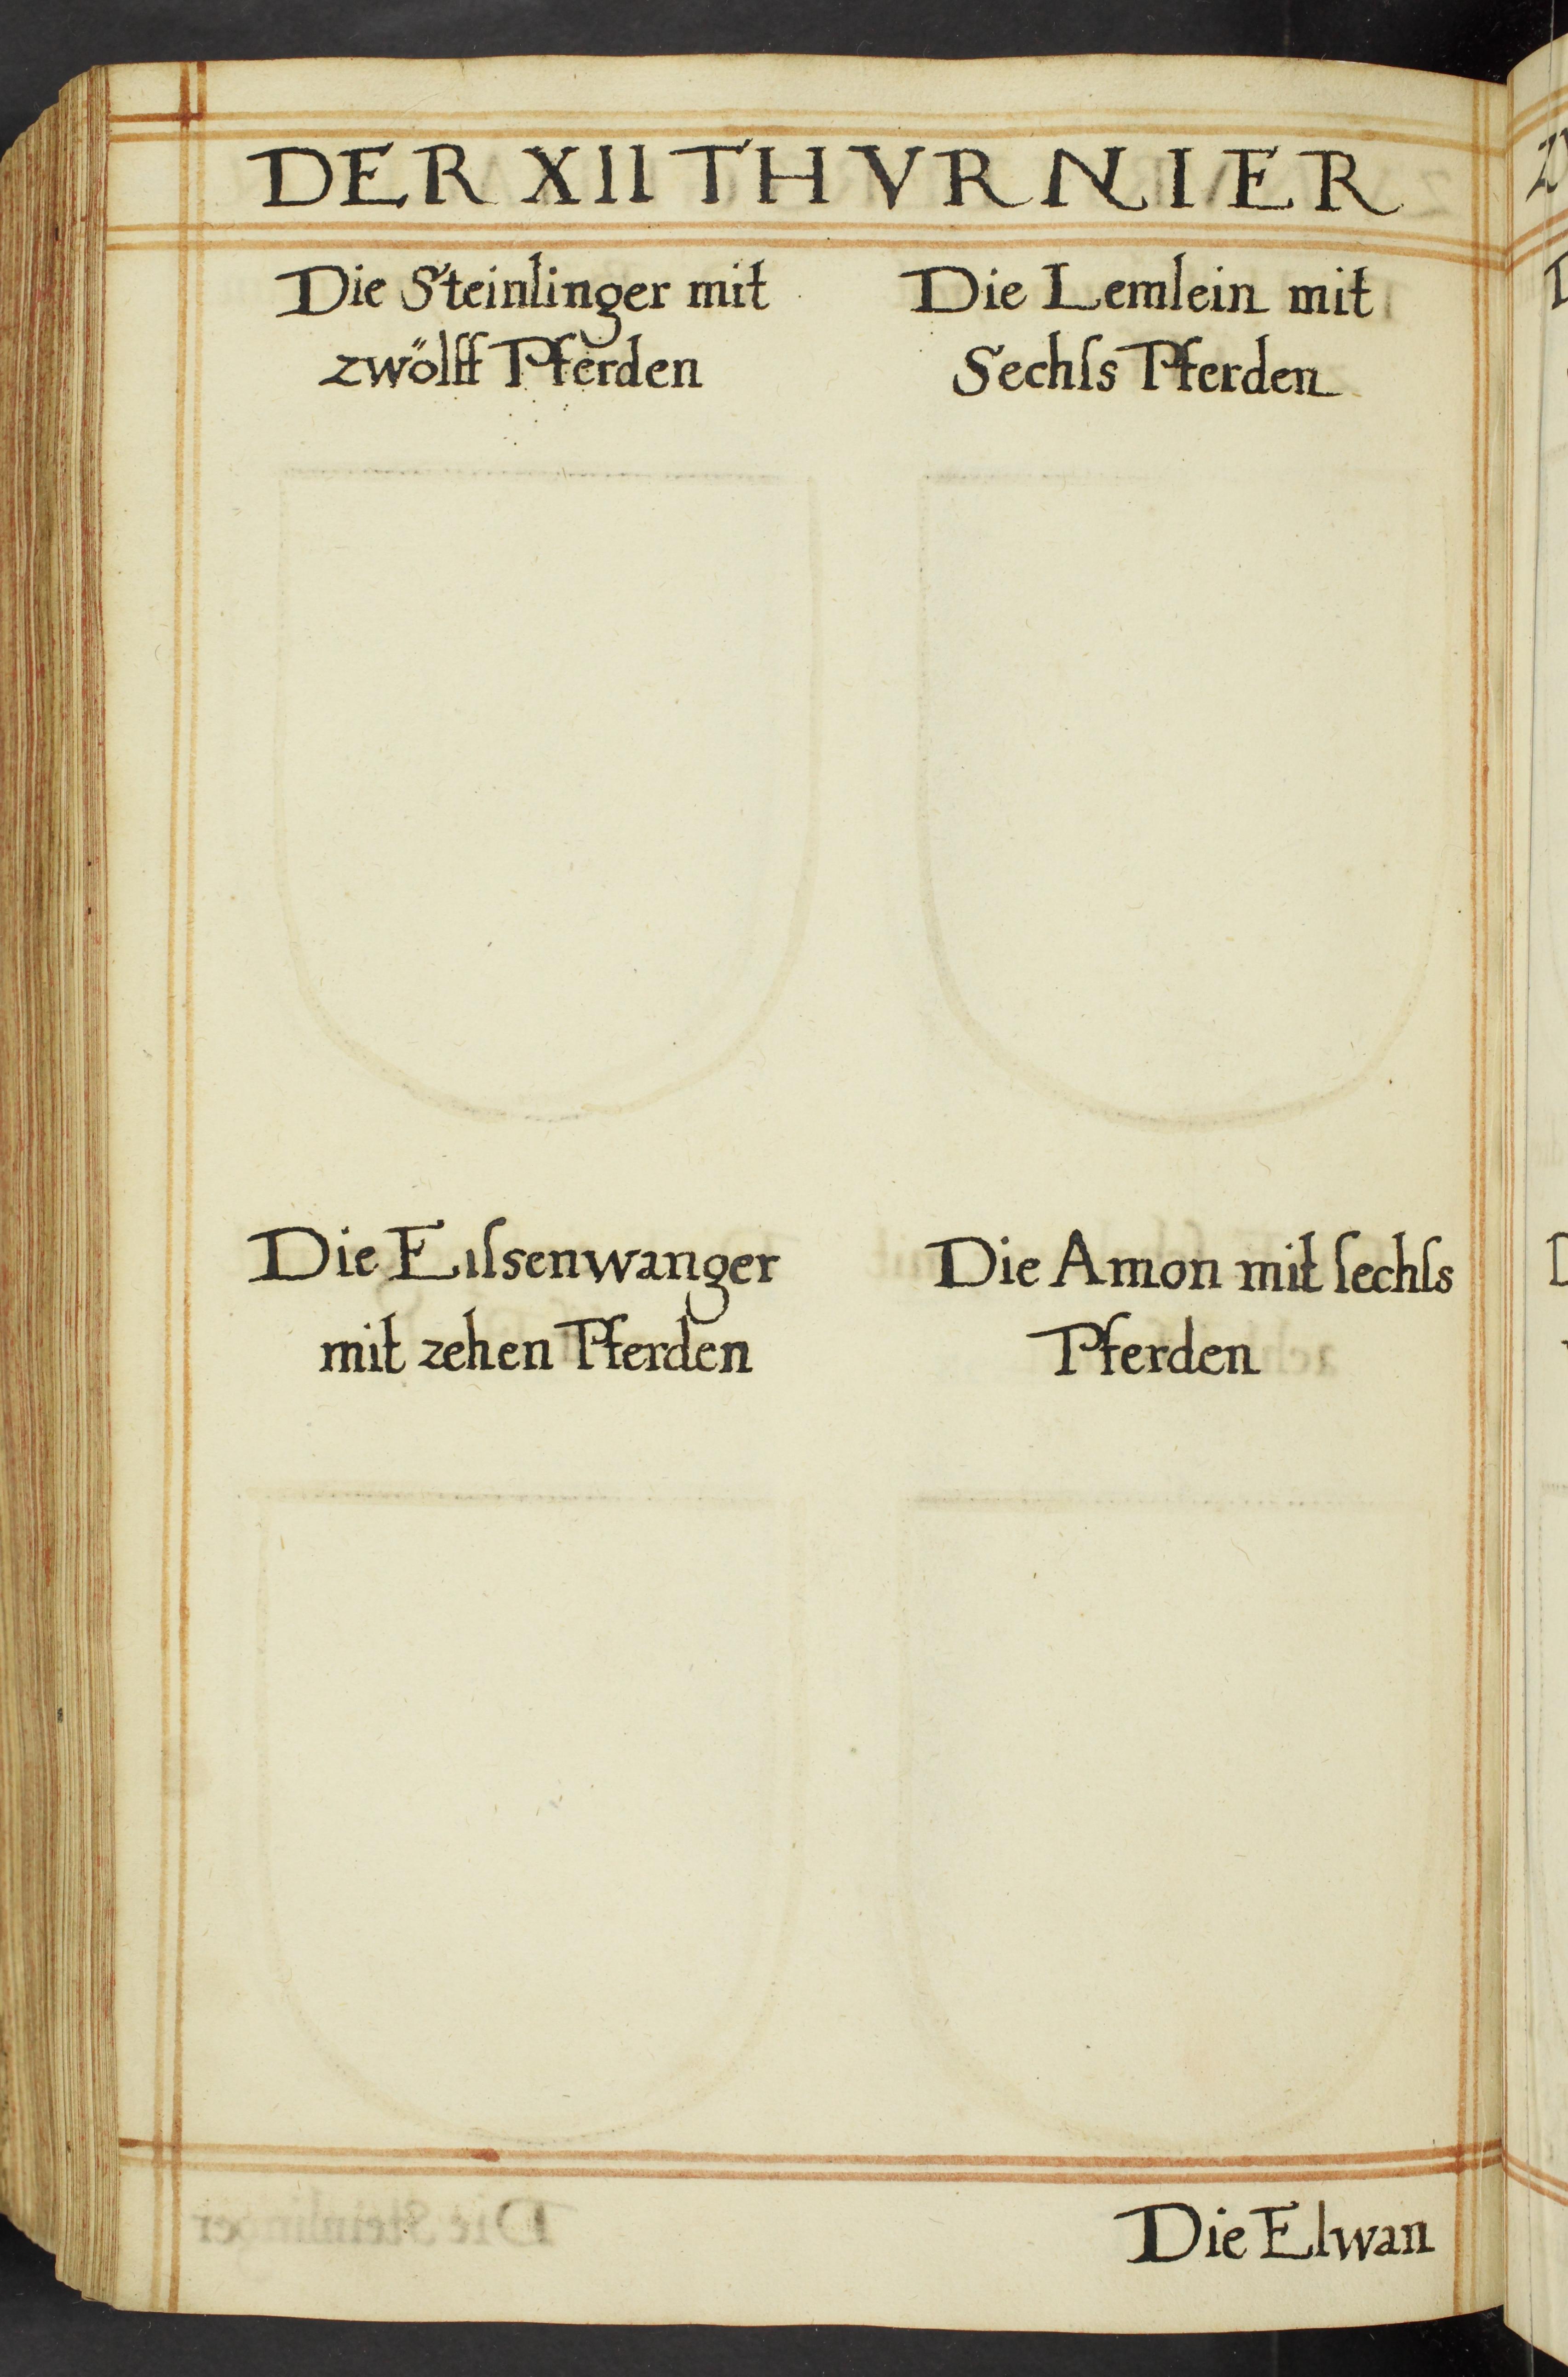 DER XII THVRNIER
Die Steinlinger mit
zwölff Pferden
Die Lemlein mit
Sechſs Pferden
Die Eiſsenwanger
mit zehen Pferden
Die Amon mit ſechſs
Pferden
Die Elwan